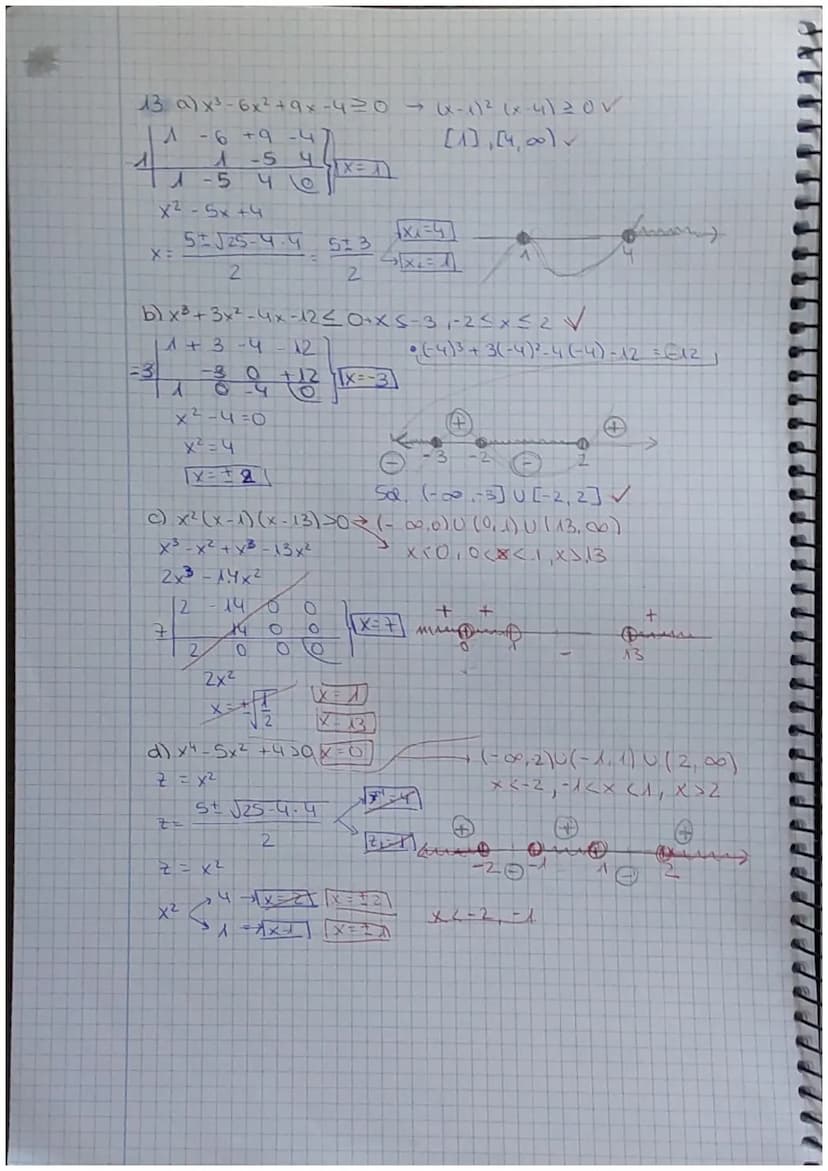 13. a) x³-6x²+9x-4≥0 → (x-1)² (x-4)≥0 ✓
1 -6 +9 -4 [1],[4,∞) ✓
1 1 -5 4 x=1
1 -5 4 0
x²-5x+4
x= 5±√25-4·4 / 2 = 5±3 / 2 x₁=4 x₂=1
1 4
b) x³+3x²-4x-12≤0→x≤-3,-2≤x≤2 ✓
1 +3 -4 -12 •(-4)³+3(-4)²-4(-4)-12=-12
-3 -3 0 +12 x=-3
1 0 -4 0
x²-4=0 +
x²=4 +
- -3 -2 - 2
x=±2
Sol. (-∞,-3]∪[-2,2] ✓
c) x²(x-1)(x-13)>0→(-∞,0)∪(0,1)∪(13,∞)
x³-x²+x³-13x² x<0,0<x<1,x>13
2x³-14x²
2 -14 0 0 + + +
7 14 0 0 x=7
2 0 0 0 0 1 - 13
2x²
x=±√1/2 x=1
x=13
d) x⁴-5x²+4>0 x=0 → (-∞,2)∪(-1,1)∪(2,∞)
z=x² x<-2,-1<x<1,x>2
z= 5±√25-4·4 / 2
+ + +
-2 - -1 1 - 2
z=x²
x² 4 → x=2 x=±2 x<-2,-1
1 → x=1 x=±1